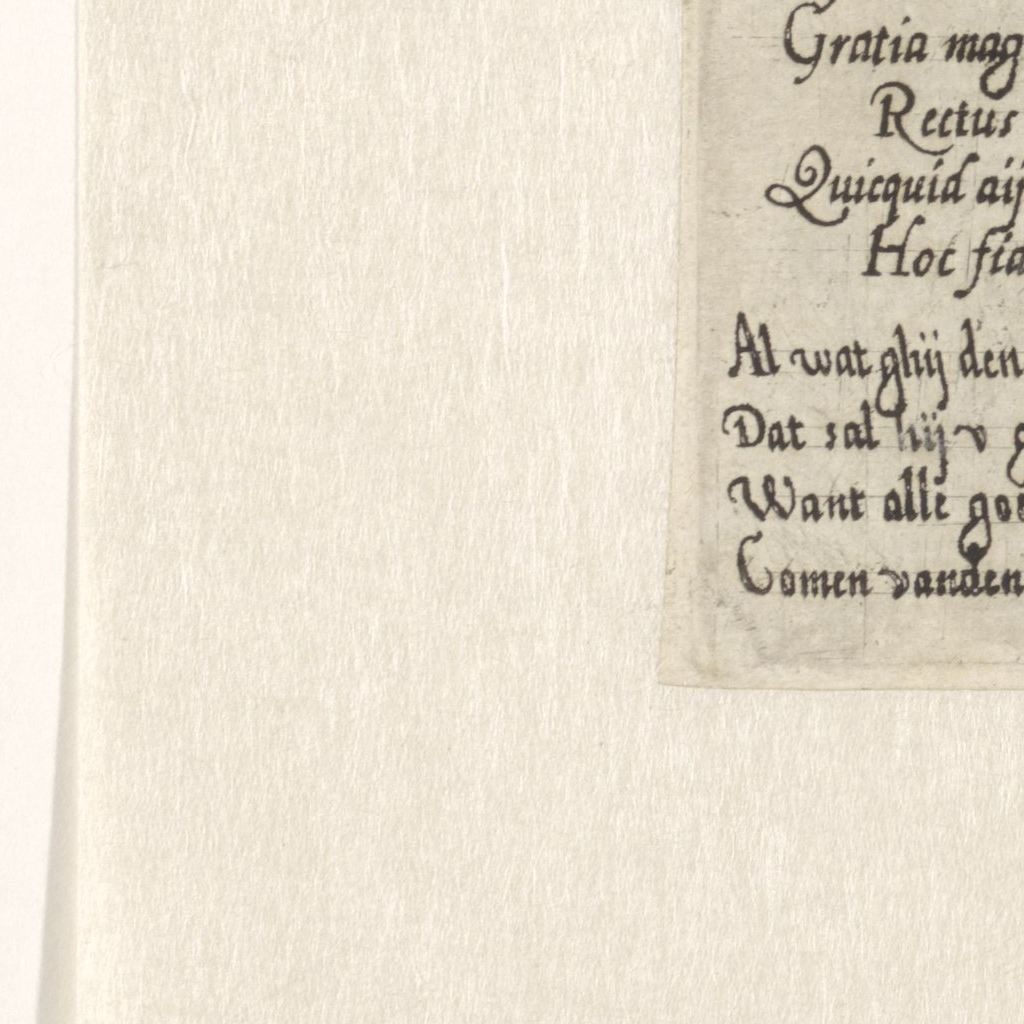 Gratia mag
Rectus
Quicquid aij
Hoc fia
Al wat ghij den
Dat sal hij v g
Want alle goe
Comen vanden